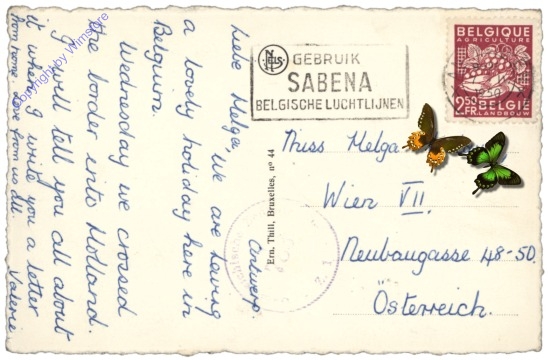 Antwerp.
Liebe Helga, We are having
a lovely holiday here in
Belgium.
Wednesday we crossed
the border into Holland.
I will tell you all about
it when I write you a letter
from home. Love from us all
Valerie
Copyright by Wimstore
Ern. Thill, Bruxelles, n° 44
NELS
GEBRUIK
SABENA
BELGISCHE LUCHTLIJNEN
BELGIQUE
AGRICULTURE
2.50 FR.
BELGIË
LANDBOUW
Miss Helga
Wien VII.
Neubaugasse 48-50.
Österreich.